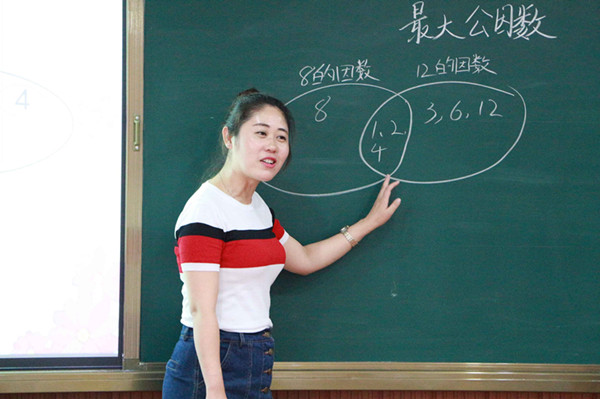 最大公因数
8的因数
12的因数
8
1,2,
4
3,6,12
4